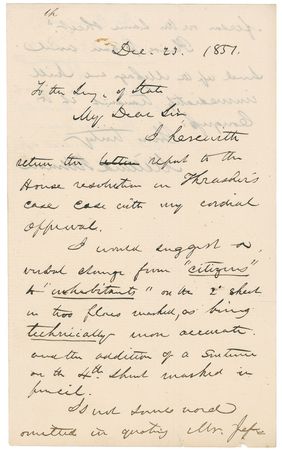 Dec. 23. 1851.
To the Secy. of State
My Dear Sir
I herewith
return the letter report to the
House resolution in Thrasher's
case case with my cordial
approval.
I would suggest a
verbal change from "citizens"
to "inhabitants" on the 2d sheet
in two places marked, as being
technically more accurate
and the addition of a sentence
on the 4th sheet marked in
pencil.
Is not some word
omitted in quoting Mr.